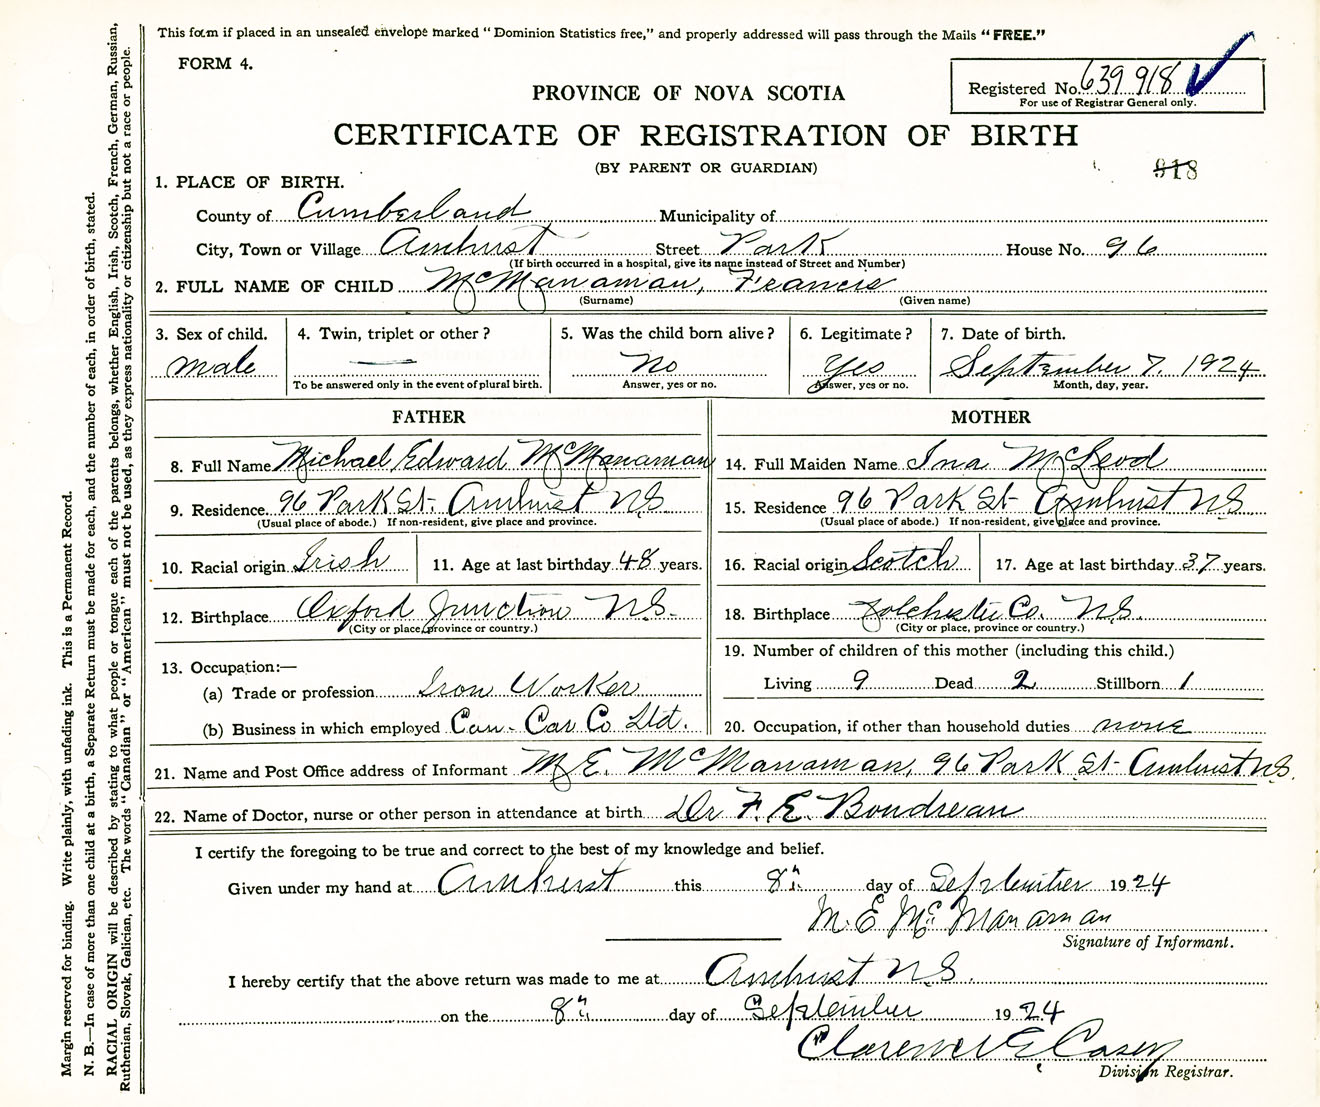 This form if placed in an unsealed envelope marked "Dominion Statistics free," and properly addressed will pass through the Mails "FREE."
FORM 4.
Registered No. 639 918
For use of Registrar General only.
PROVINCE OF NOVA SCOTIA
CERTIFICATE OF REGISTRATION OF BIRTH
(BY PARENT OR GUARDIAN)
918
1. PLACE OF BIRTH.
County of Cumberland Municipality of
City, Town or Village Amherst Street Park House No. 96
(If birth occurred in a hospital, give its name instead of Street and Number)
2. FULL NAME OF CHILD McManaman, Francis
(Surname) (Given name)
3. Sex of child. 4. Twin, triplet or other? 5. Was the child born alive? 6. Legitimate? 7. Date of birth.
male — No Yes September 7 1924
To be answered only in the event of plural birth. Answer, yes or no. Answer, yes or no. Month, day, year.
FATHER MOTHER
8. Full Name Michael Edward McManaman 14. Full Maiden Name Ina McLeod
9. Residence 96 Park St. Amherst N.S. 15. Residence 96 Park St Amherst N.S.
(Usual place of abode.) If non-resident, give place and province. (Usual place of abode.) If non-resident, give place and province.
10. Racial origin Irish 11. Age at last birthday 48 years. 16. Racial origin Scotch 17. Age at last birthday 37 years.
12. Birthplace Oxford Junction N.S. 18. Birthplace Colchester Co. N.S.
(City or place, province or country.) (City or place, province or country.)
13. Occupation:— 19. Number of children of this mother (including this child.)
(a) Trade or profession Iron Worker Living 9 Dead 2 Stillborn 1
(b) Business in which employed Can-Car Co Ltd. 20. Occupation, if other than household duties none
21. Name and Post Office address of Informant M E. McManaman, 96 Park St- Amherst N.S.
22. Name of Doctor, nurse or other person in attendance at birth Dr F. E. Boudreau
I certify the foregoing to be true and correct to the best of my knowledge and belief.
Given under my hand at Amherst this 8th day of September 1924
M. E McManaman
Signature of Informant.
I hereby certify that the above return was made to me at Amherst N.S.
on the 8th day of September 1924
Clarence E Casey
Division Registrar.
Margin reserved for binding. Write plainly, with unfading ink. This is a Permanent Record.
N. B.—In case of more than one child at a birth, a Separate Return must be made for each, and the number of each, in order of birth, stated.
RACIAL ORIGIN will be described by stating to what people or tongue each of the parents belongs, whether English, Irish, Scotch, French, German, Russian,
Ruthenian, Slovak, Galician, etc. The words "Canadian" or "American" must not be used, as they express nationality or citizenship but not a race or people.